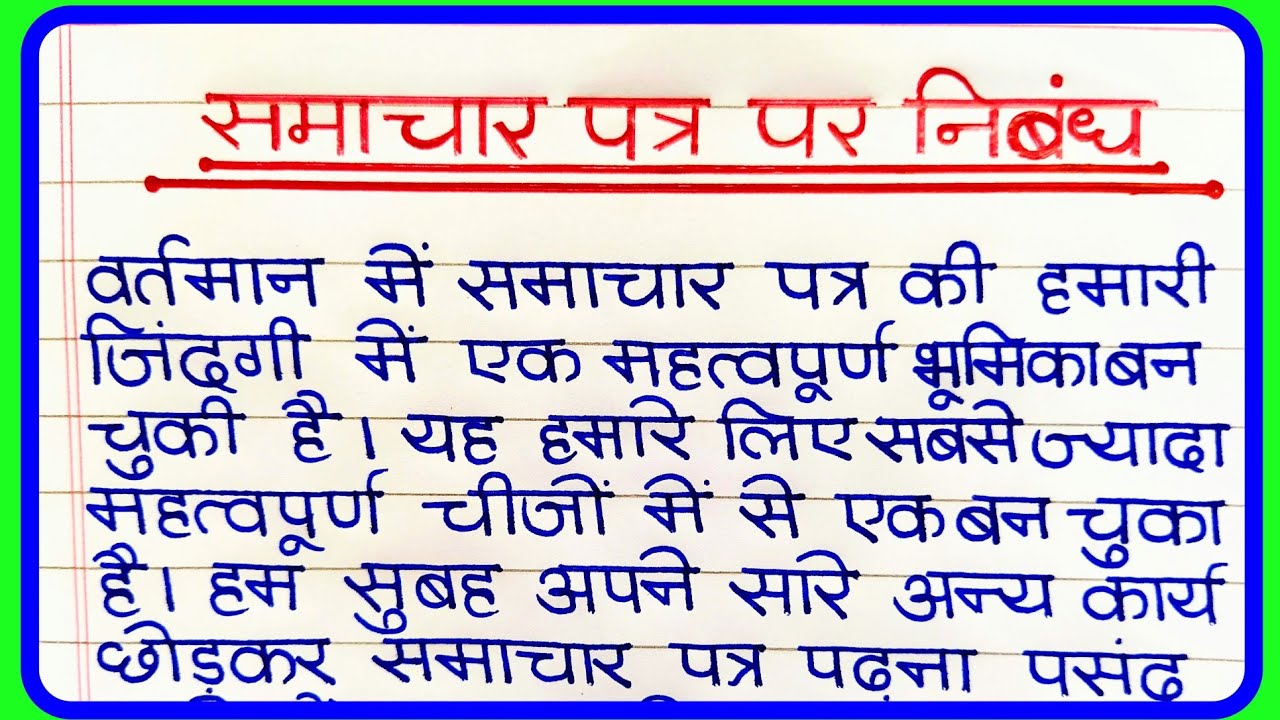 समाचार पत्र पर निबंध
वर्तमान में समाचार पत्र की हमारी
जिंदगी में एक महत्वपूर्ण भूमिका बन
चुकी है। यह हमारे लिए सबसे ज्यादा
महत्वपूर्ण चीजों में से एक बन चुका
है। हम सुबह अपने सारे अन्य कार्य
छोड़कर समाचार पत्र पढ़ना पसंद